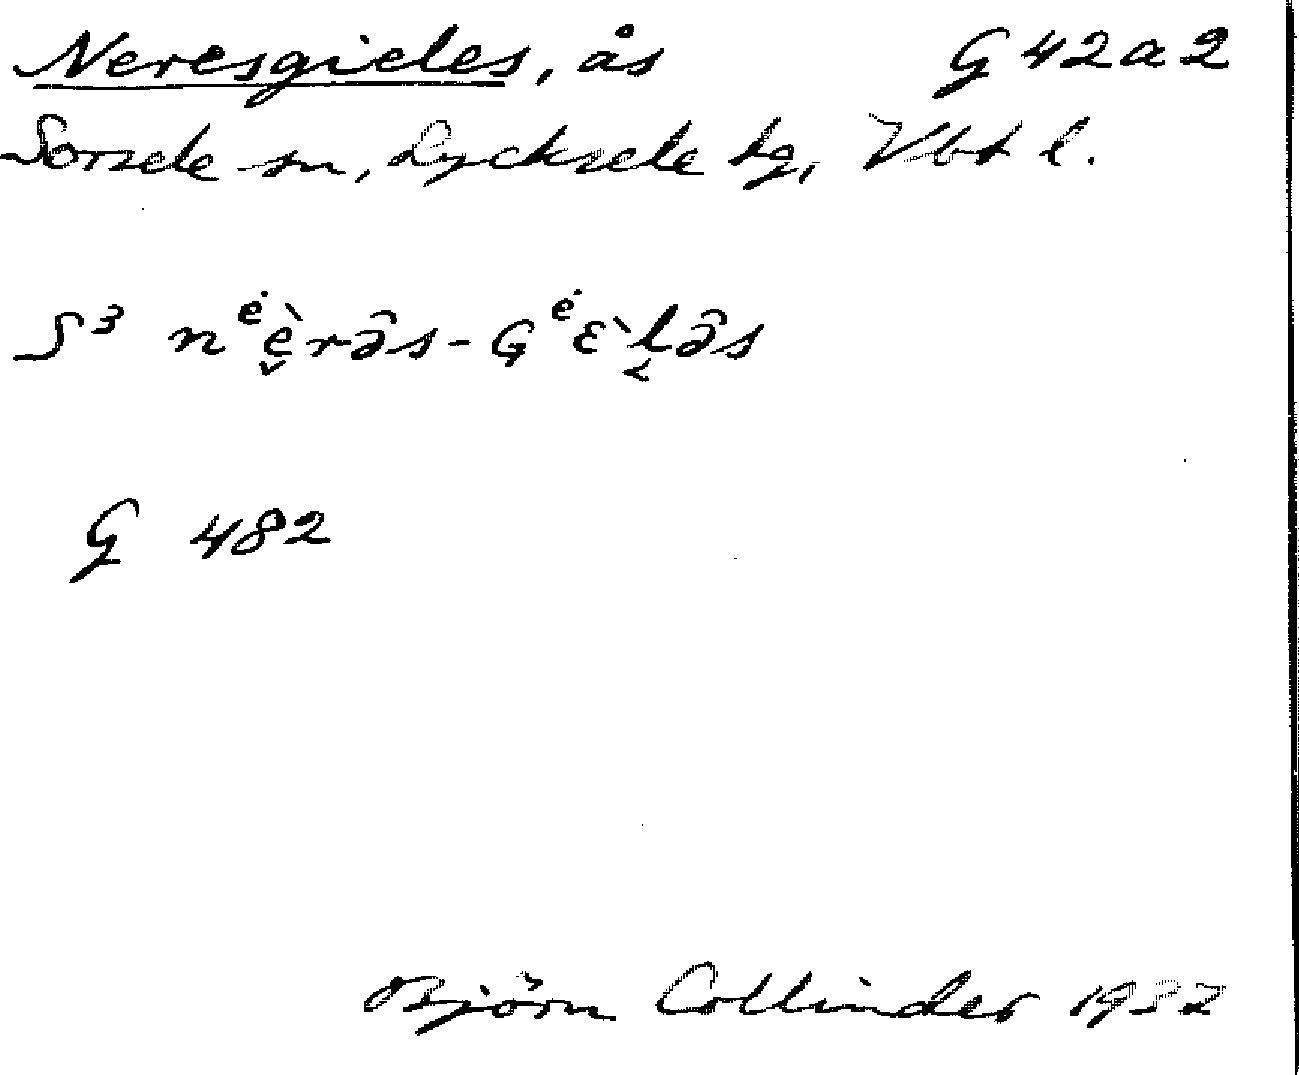 Neresgieles, ås G 42 a 2
Sorsele sn, Lycksele tg, Vbt l.
S³ nᵉ̇è̬rə̂s-Gᵉ̇ɛ̀l̬ə̂s
G 482
Björn Collinder 1932